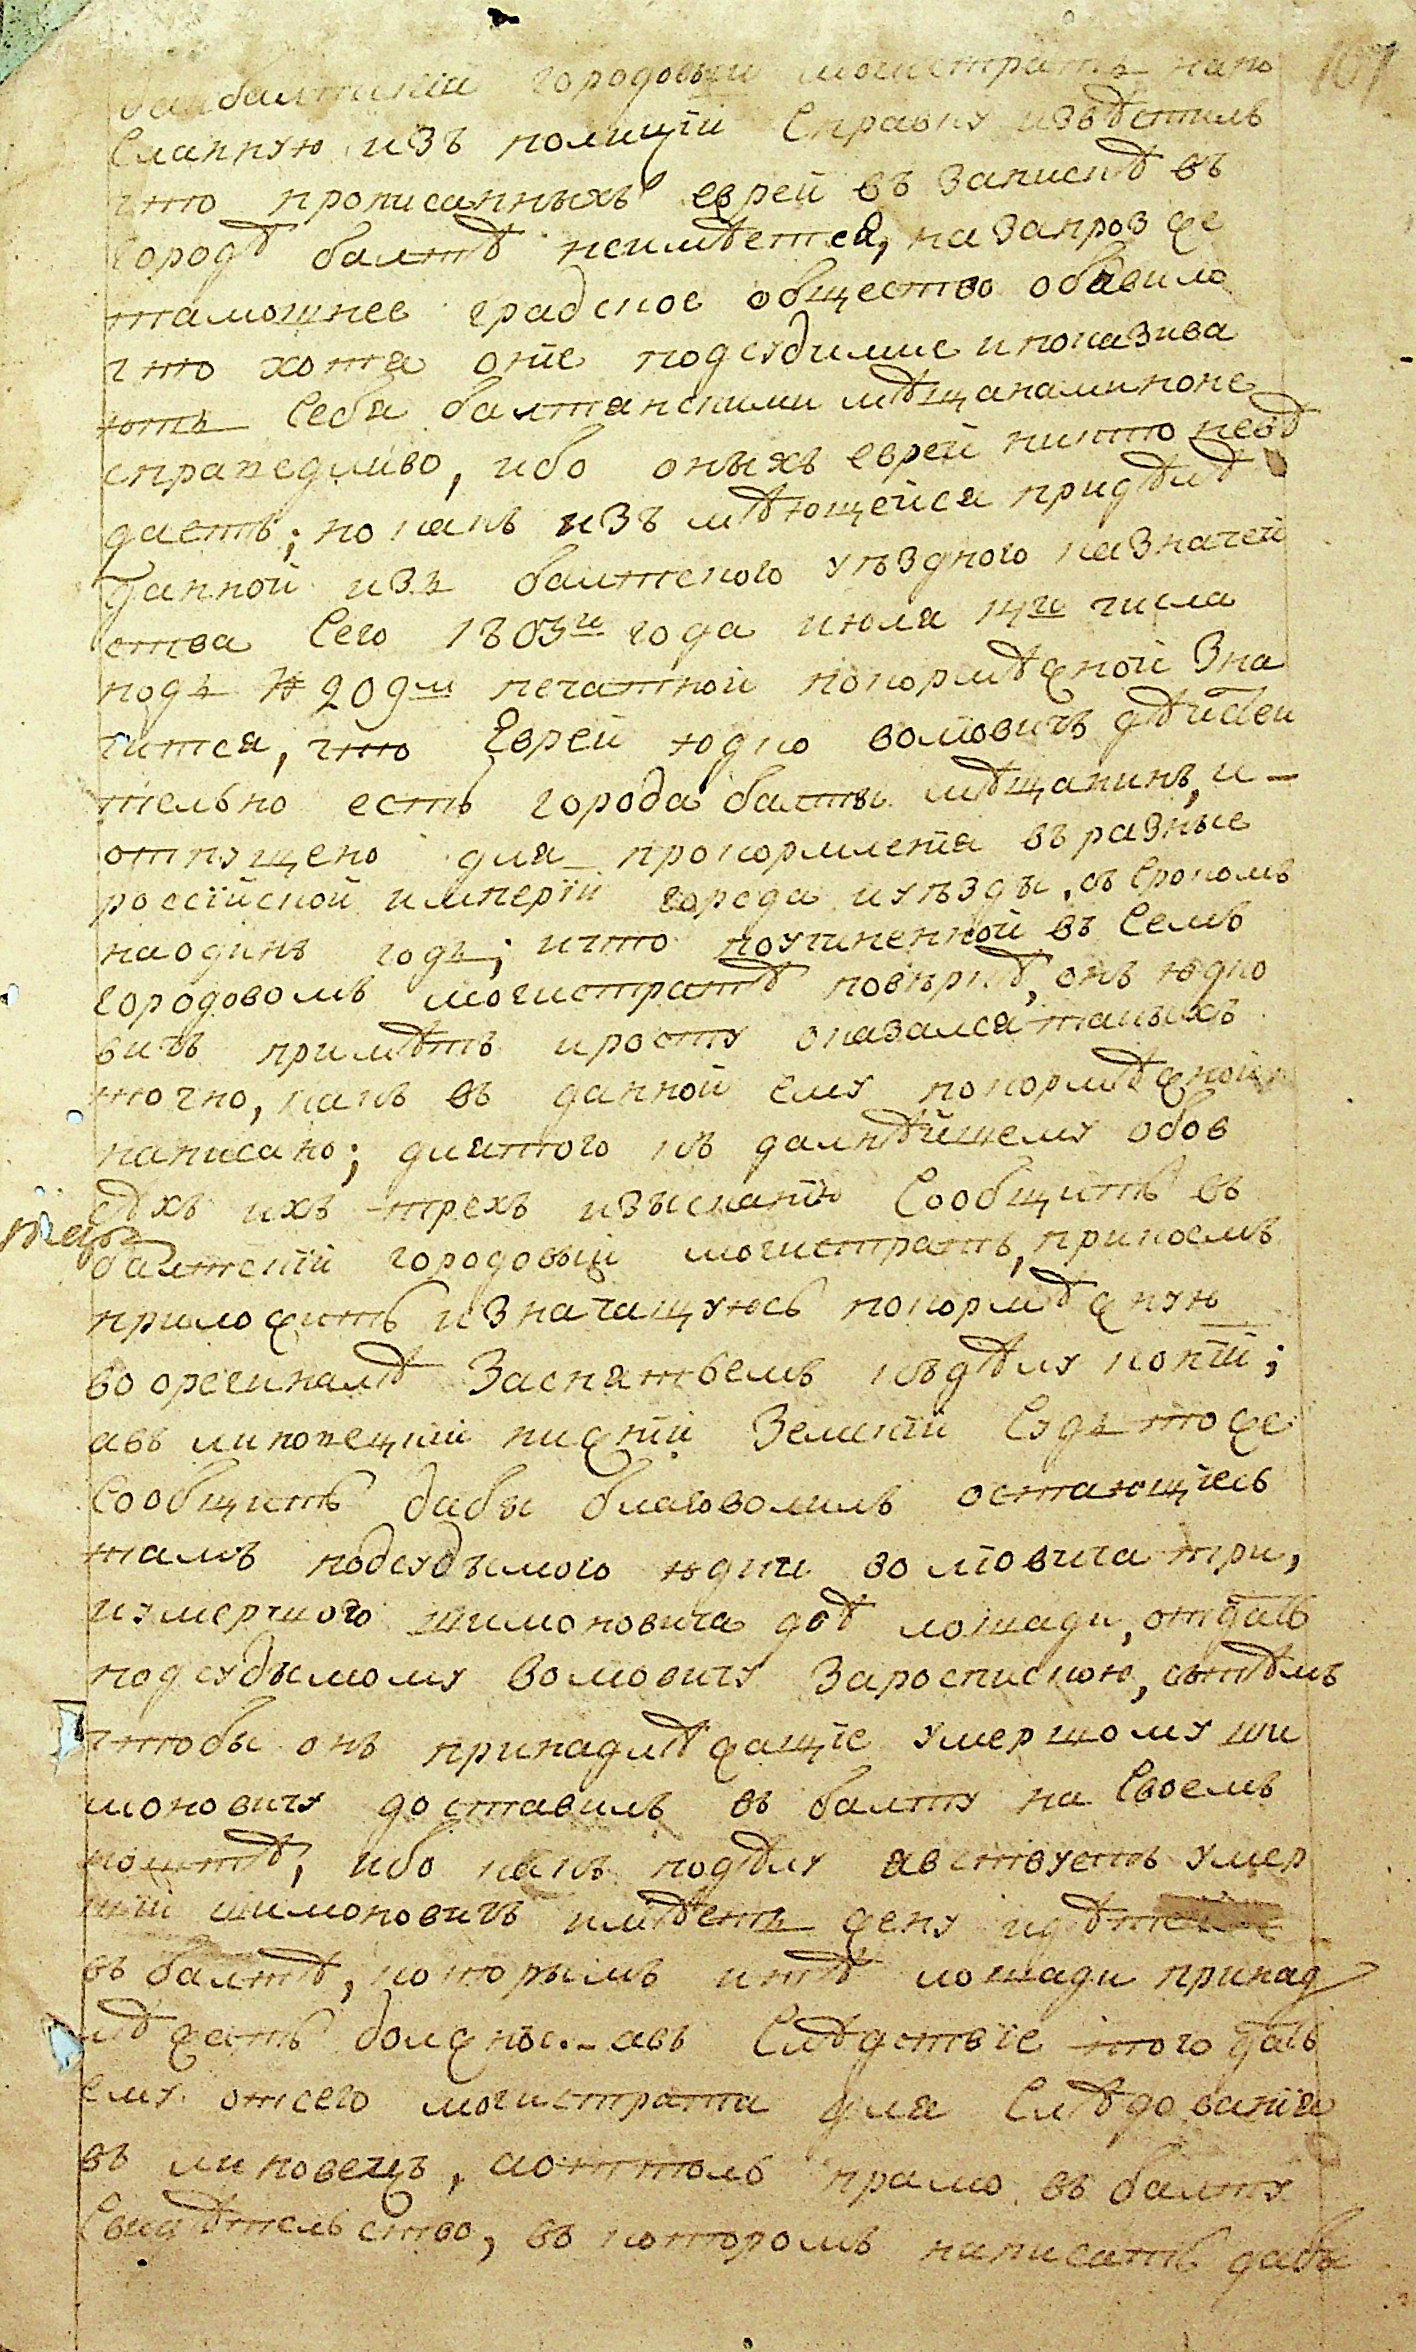 балтскій городовый могистратъ напо 107
сланную изъ полиціи справку извѣстилъ
что прописанныхъ еврей въ запискѣ въ
городѣ балтѣ неимѣется, на запроз же
тамошнее градское общество обявило
что хотя оніе подсудиміе и показива
ютъ себя балтянскими мѣщанами но не
справедливо, ибо оныхъ еврей никто невѣ
даетъ; но какъ изъ мѣющейся придѣлѣ
данной изъ балтского уѣздного казначей
ства сего 1803го года июля 14го числа
подъ № 209м печатной покормѣжной зна
чится, что еврей юдко волковичъ дѣйстви
тельно есть города балты мѣщанинъ, и –
отпущено для прокормленія въ разные
россійской имперіи города и уѣзды, съ срокомъ
наодинъ годъ; и что поучиненной въ семъ
городовомъ могистратѣ повѣркѣ, онъ юдко
вичъ примѣтъ и росту оказался такыхъ
точно, какъ въ данной ему покормѣжной
написано; длятого къ далнѣйшему обов
сѣхъ ихъ трехъ изысканію сообщить въ
балтскій городовый могистратъ, при коемъ
приложить и значащуюсь покормѣжную
во орегиналѣ заснятьемъ къдѣлу копіи;
авъ липовецкій нижній земскій судъ тоже
сообщить дабы благоволилъ остающіесь
тамъ подсудымого юдки волковича три,
иумершого шимоновича двѣ лошади, отдать
подсудымому волковичу заросписною, стѣмъ
чтобы онъ принадлѣжащіе умершому ши
моновичу доставилъ въ балту на своемъ
коштѣ, ибо какъ подѣлу явствуетъ умер
шій шимоновичъ имѣетъ жену идѣтей
въ балтѣ, которымъ итѣ лошади принад
лѣжать должны. – авъ слѣдствіе того дать
ему отсего могистрата для слѣдованія
въ липовецъ, аоттоль прамо въ балту
свидѣтельство, въ которомъ написать дабы